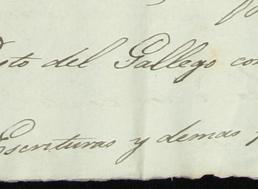 del Gallego con
Escrituras y demas